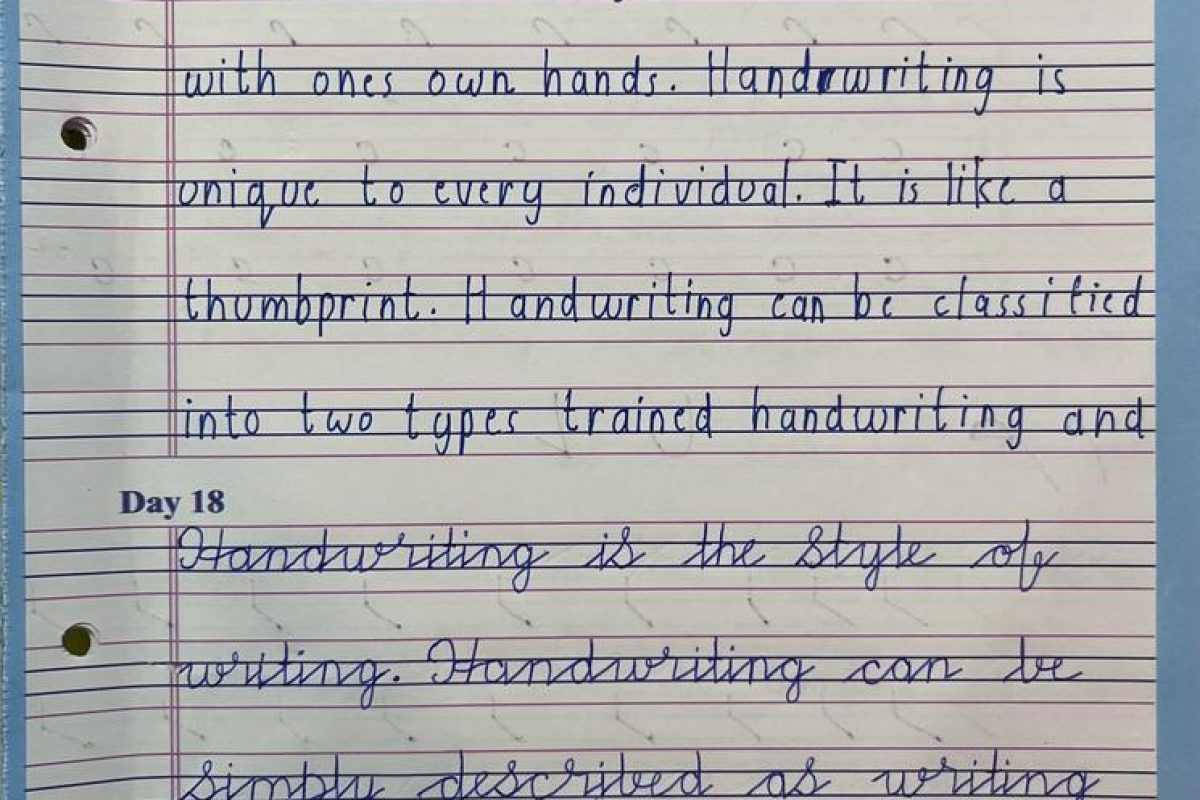 with ones own hands. Handwriting is
unique to every individual. It is like a
thumbprint. Handwriting can be classified
into two types trained handwriting and
Day 18
Handwriting is the style of
writing. Handwriting can be
simply described as writing